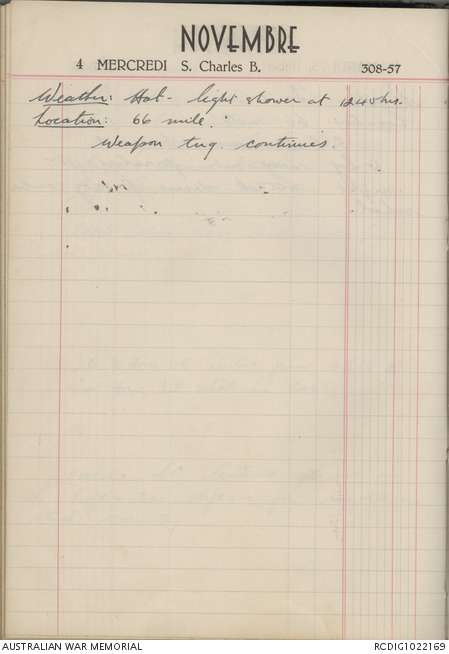 NOVEMBRE
4 MERCREDI S. Charles B. 308-57
Weather: Hot - light shower at 1240 hrs.
Location: 66 mile.
Weapon tng. continues.
AUSTRALIAN WAR MEMORIAL RCDIG1022169